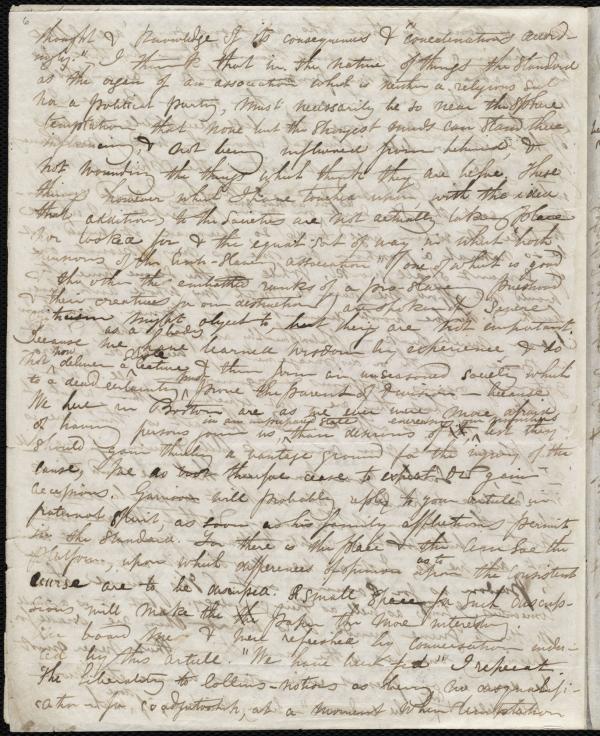 6
thought & knowledge of its consequences & "concatenations accord-
ingly." I think that in the nature of things the Standard
as the organ of an association which is neither a religious sect
nor a political party, must necessarily be so near the sphere
temptation that none but the strongest minds can stand there
& not being influenced from behind, &
not wounding the things which they are before. These
things however which I have touched upon with the idea
that additions to the Societies are not actually taking place
nor looked for & the equal sort of way in which both
unions of the Anti-Slavery association "one of which is good
& the other the embattled ranks of a pro-slavery priesthood
& their creatures for our destruction, are spoken of
might object to, but they are not important,
because we have as a body learned wisdom by experience & do
not now deliver a lecture & then form an unseasoned society which
to a dead certainty must prove the parent of division - because
We here in Boston are as we ever were more afraid
of having persons join us in an unprepared state than desirous of lest they
should gain thereby a vantage ground for the injury of the
cause, We as soon therefore cease to expect gain
accessions. Garrison will probably reply to your article in
fraternal spirit, as soon as his family afflictions permit
in the Standard. For there is the place & the Am Soc the
platform, upon which differences of opinion as to the consistent
course are to be A small space for such discus-
sions will make the paper the more interesting.
board me & were refreshed by conversation
by this article. "We have " I repeat
The liberality to Collins - notions as they are a disqualifi-
cation for coadjutorship, at a moment when temptation